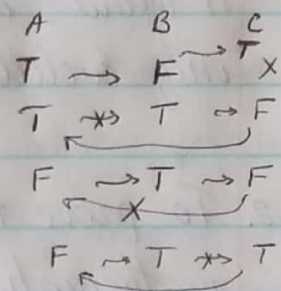 A B C
T → F → T X
T ↛ T → F
F → T → F
X
F → T ↛ T